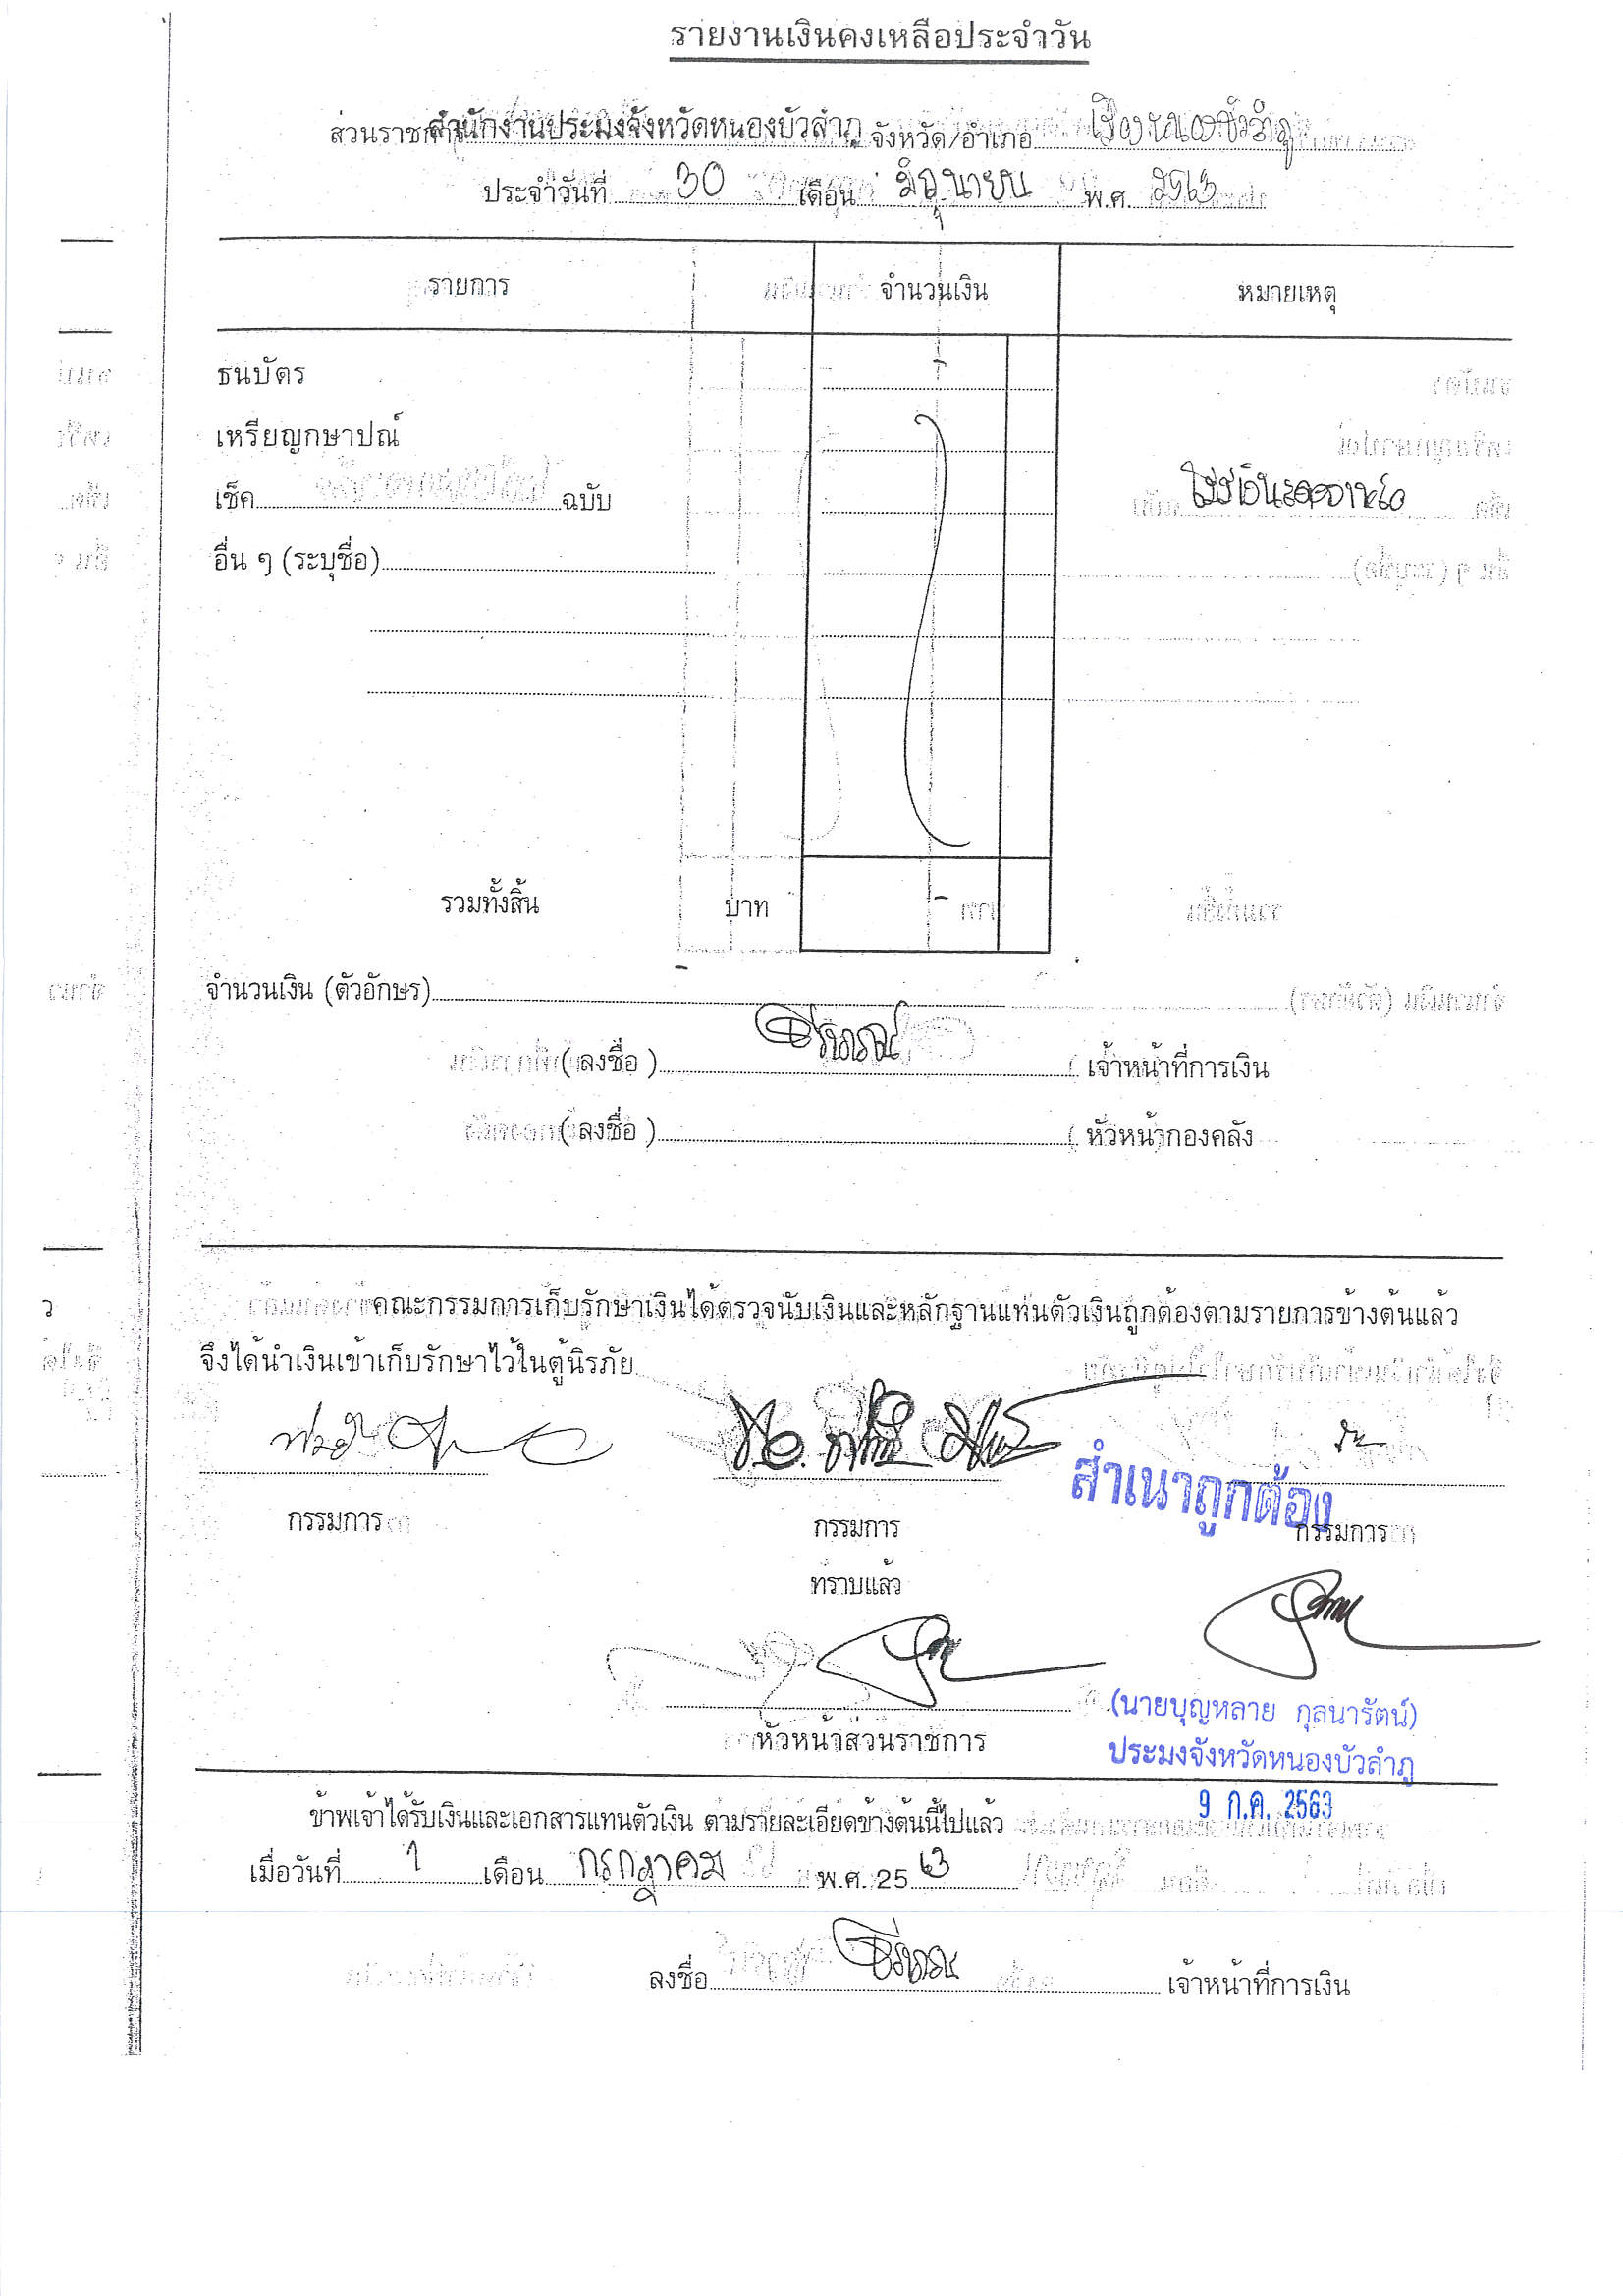 รายงานเงินคงเหลือประจำวัน
ส่วนราชการ สำนักงานประมงจังหวัดหนองบัวลำภู จังหวัด/อำเภอ เมืองหนองบัวลำภู
ประจำวันที่ 30 เดือน มิถุนายน พ.ศ. 2563
รายการ จำนวนเงิน หมายเหตุ
ธนบัตร -
เหรียญกษาปณ์
เช็ค ฉบับ
อื่น ๆ (ระบุชื่อ)
รวมทั้งสิ้น บาท -
จำนวนเงิน (ตัวอักษร) -
(ลงชื่อ) เจ้าหน้าที่การเงิน
(ลงชื่อ) หัวหน้ากองคลัง
คณะกรรมการเก็บรักษาเงินได้ตรวจนับเงินและหลักฐานแทนตัวเงินถูกต้องตามรายการข้างต้นแล้ว
จึงได้นำเงินเข้าเก็บรักษาไว้ในตู้นิรภัย
สำเนาถูกต้อง
กรรมการ กรรมการ กรรมการ
ทราบแล้ว
(นายบุญหลาย กุลนารัตน์)
หัวหน้าส่วนราชการ
ประมงจังหวัดหนองบัวลำภู
9 ก.ค. 2563
ข้าพเจ้าได้รับเงินและเอกสารแทนตัวเงิน ตามรายละเอียดข้างต้นนี้ไปแล้ว
เมื่อวันที่ 1 เดือน กรกฎาคม พ.ศ. 25 63
ลงชื่อ เจ้าหน้าที่การเงิน